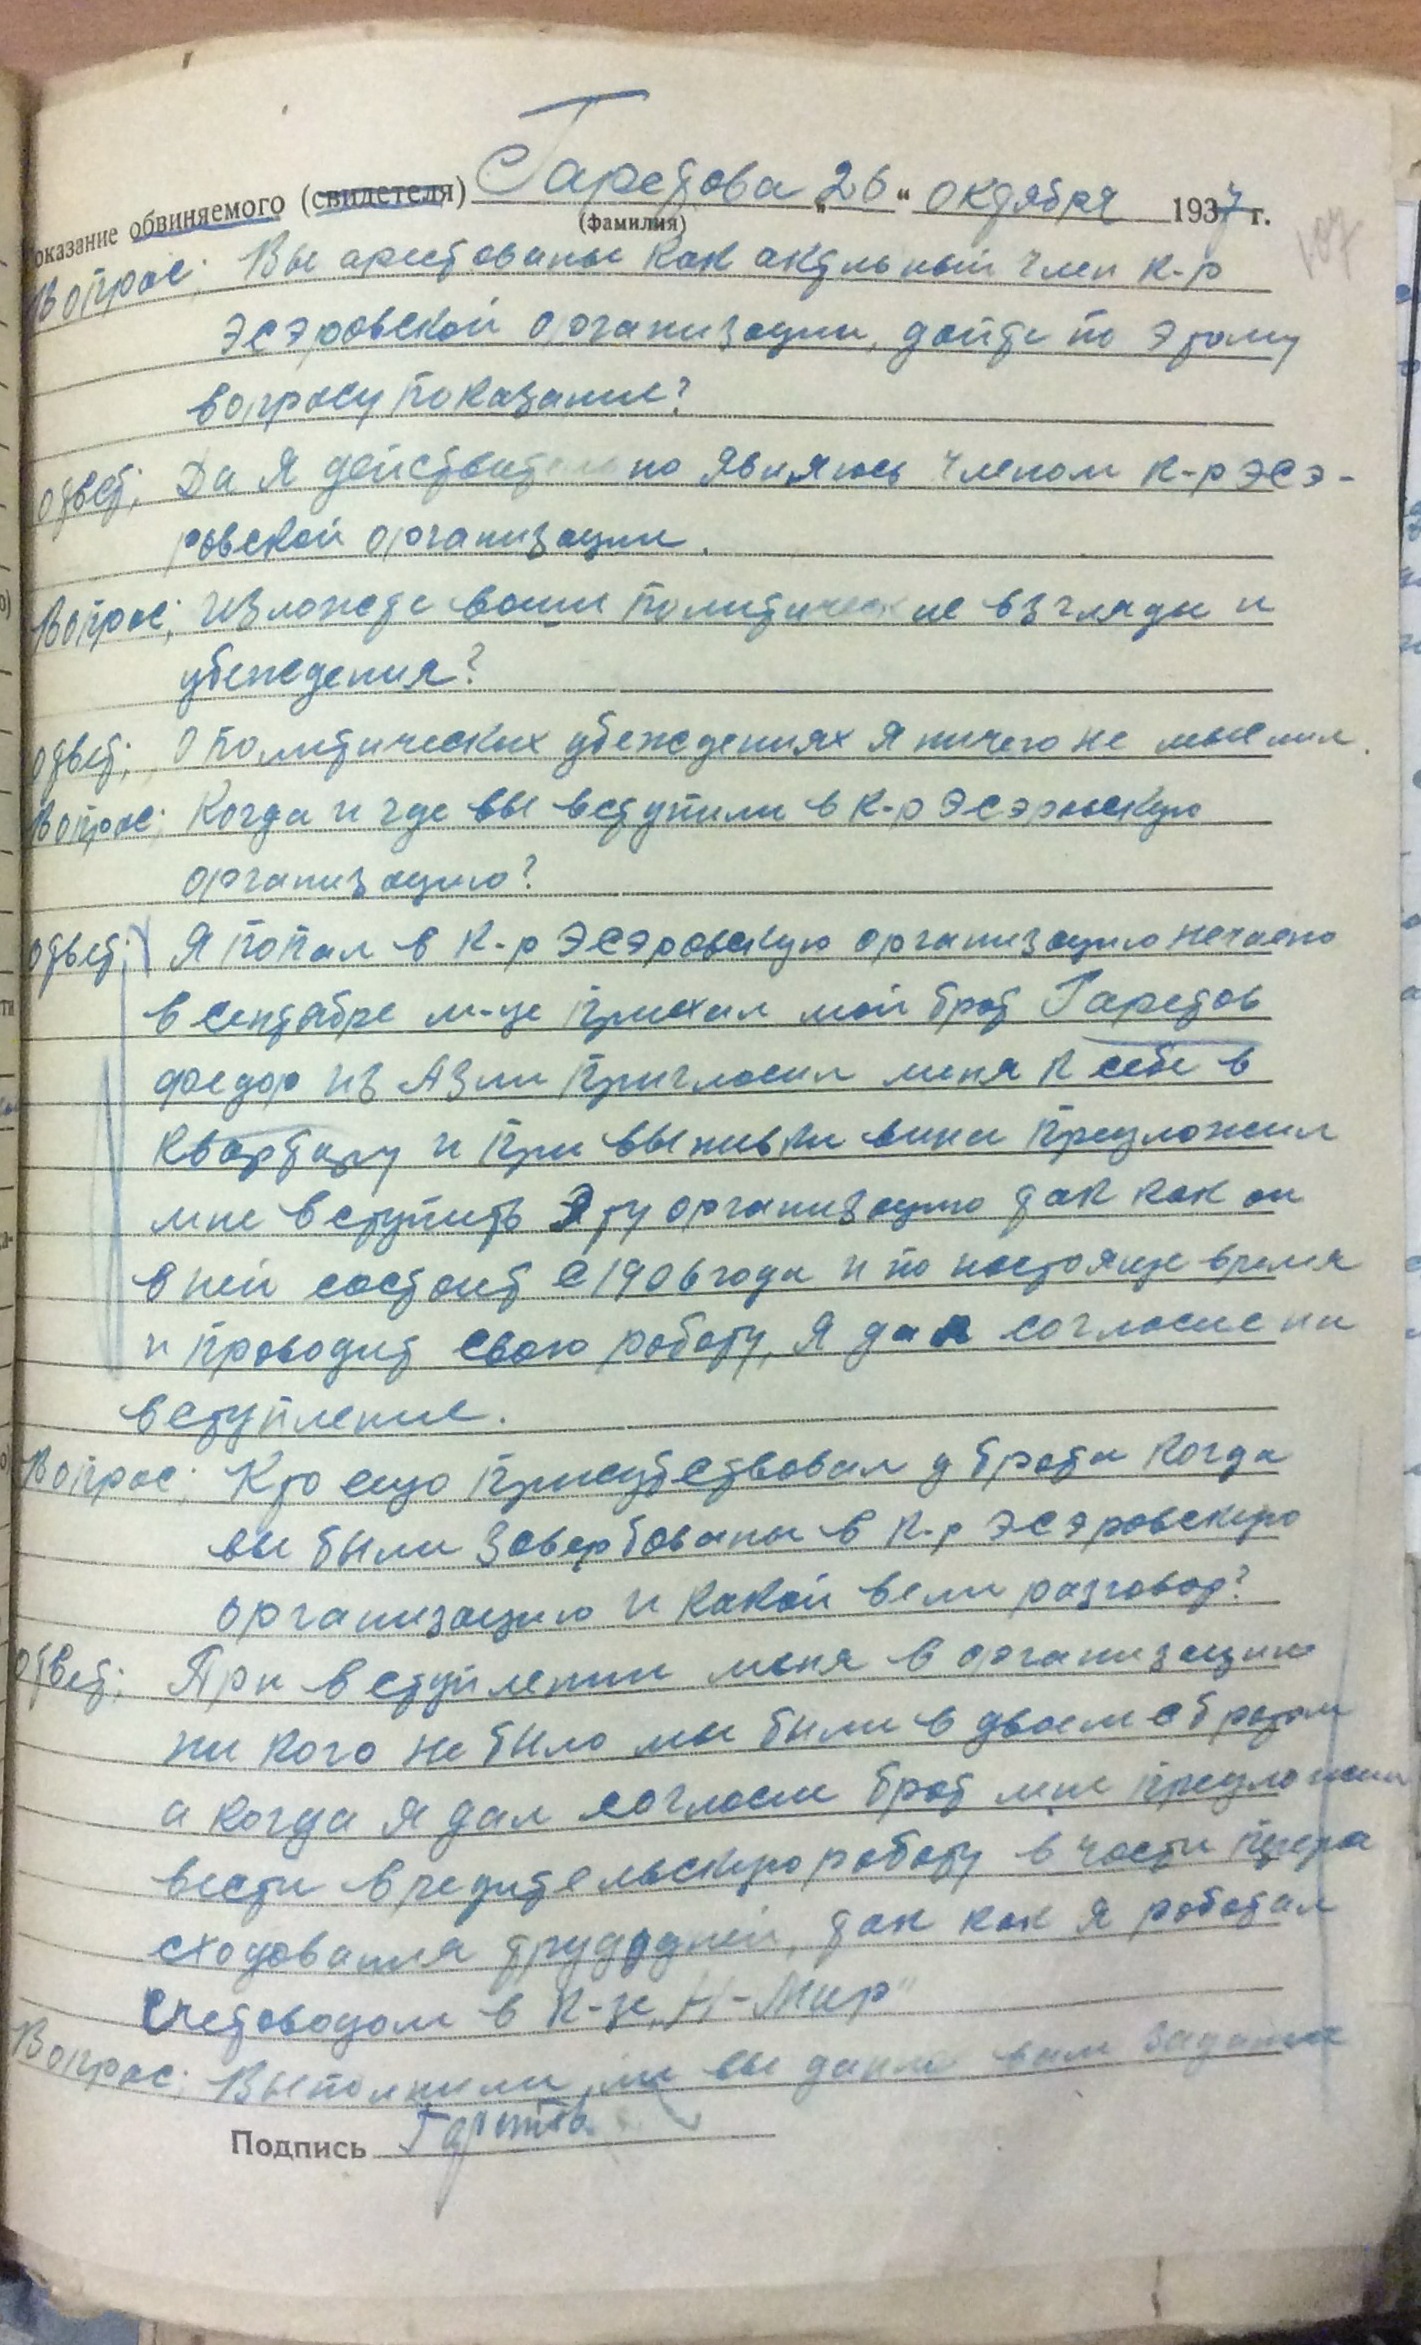 Показание обвиняемого (свидетеля) Гаретова „26“ октября 1937 г.
(фамилия)
107
Вопрос: Вы арестованы какактывный член к-р
эсэровской организации, дайте по этому
вопросу показание?
ответ: Да я действительно являюсь членом к-р эсэ-
ровской организации.
Вопрос: Изложете ваши политические взгляды и
убеждения?
ответ: О политических убеждениях я ничего не мыслил.
Вопрос: Когда и где вы вступили в к-р эсэровскую
организацию?
ответ: Я попал в к-р эсэровскую организацию нечаено
в сентябре м-це приехал мой брат Гаретов
федор из Азии пригласил меня к себе в
квартиру и при выпивки вина предложил
мне вступить эту организацию так как он
в ней состоит с 1906 года и по настояще время
и проводит свою работу, я дал согласие на
вступление.
Вопрос: Кто ещо присутствовал у брата когда
вы были завербованы в к-р эсэровскую
организацию и какой вели разговор?
ответ: При вступлении меня в организацию
ни кого не было мы были в двоем с братом
а когда я дал согласие брат мне предложил
вести вредительскую работу в части пере
сходования трудодней, так как я работал
счетоводом в к-зе „Н-Мир"
Вопрос: Выполнили ли вы данное вам задание
Подпись Гаретов